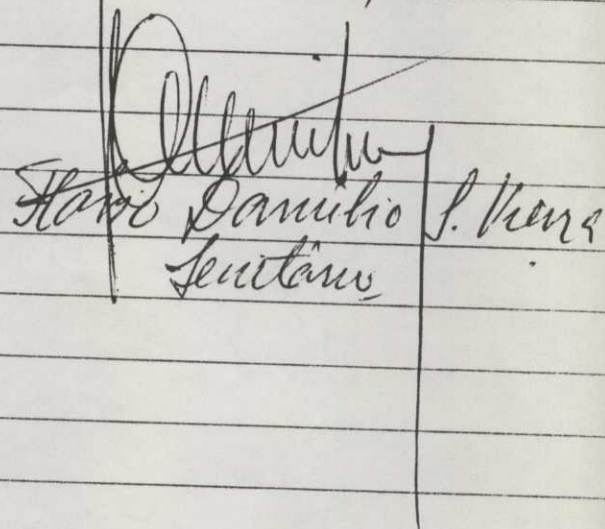 Flávio Damilio S. Vieira
Secretário